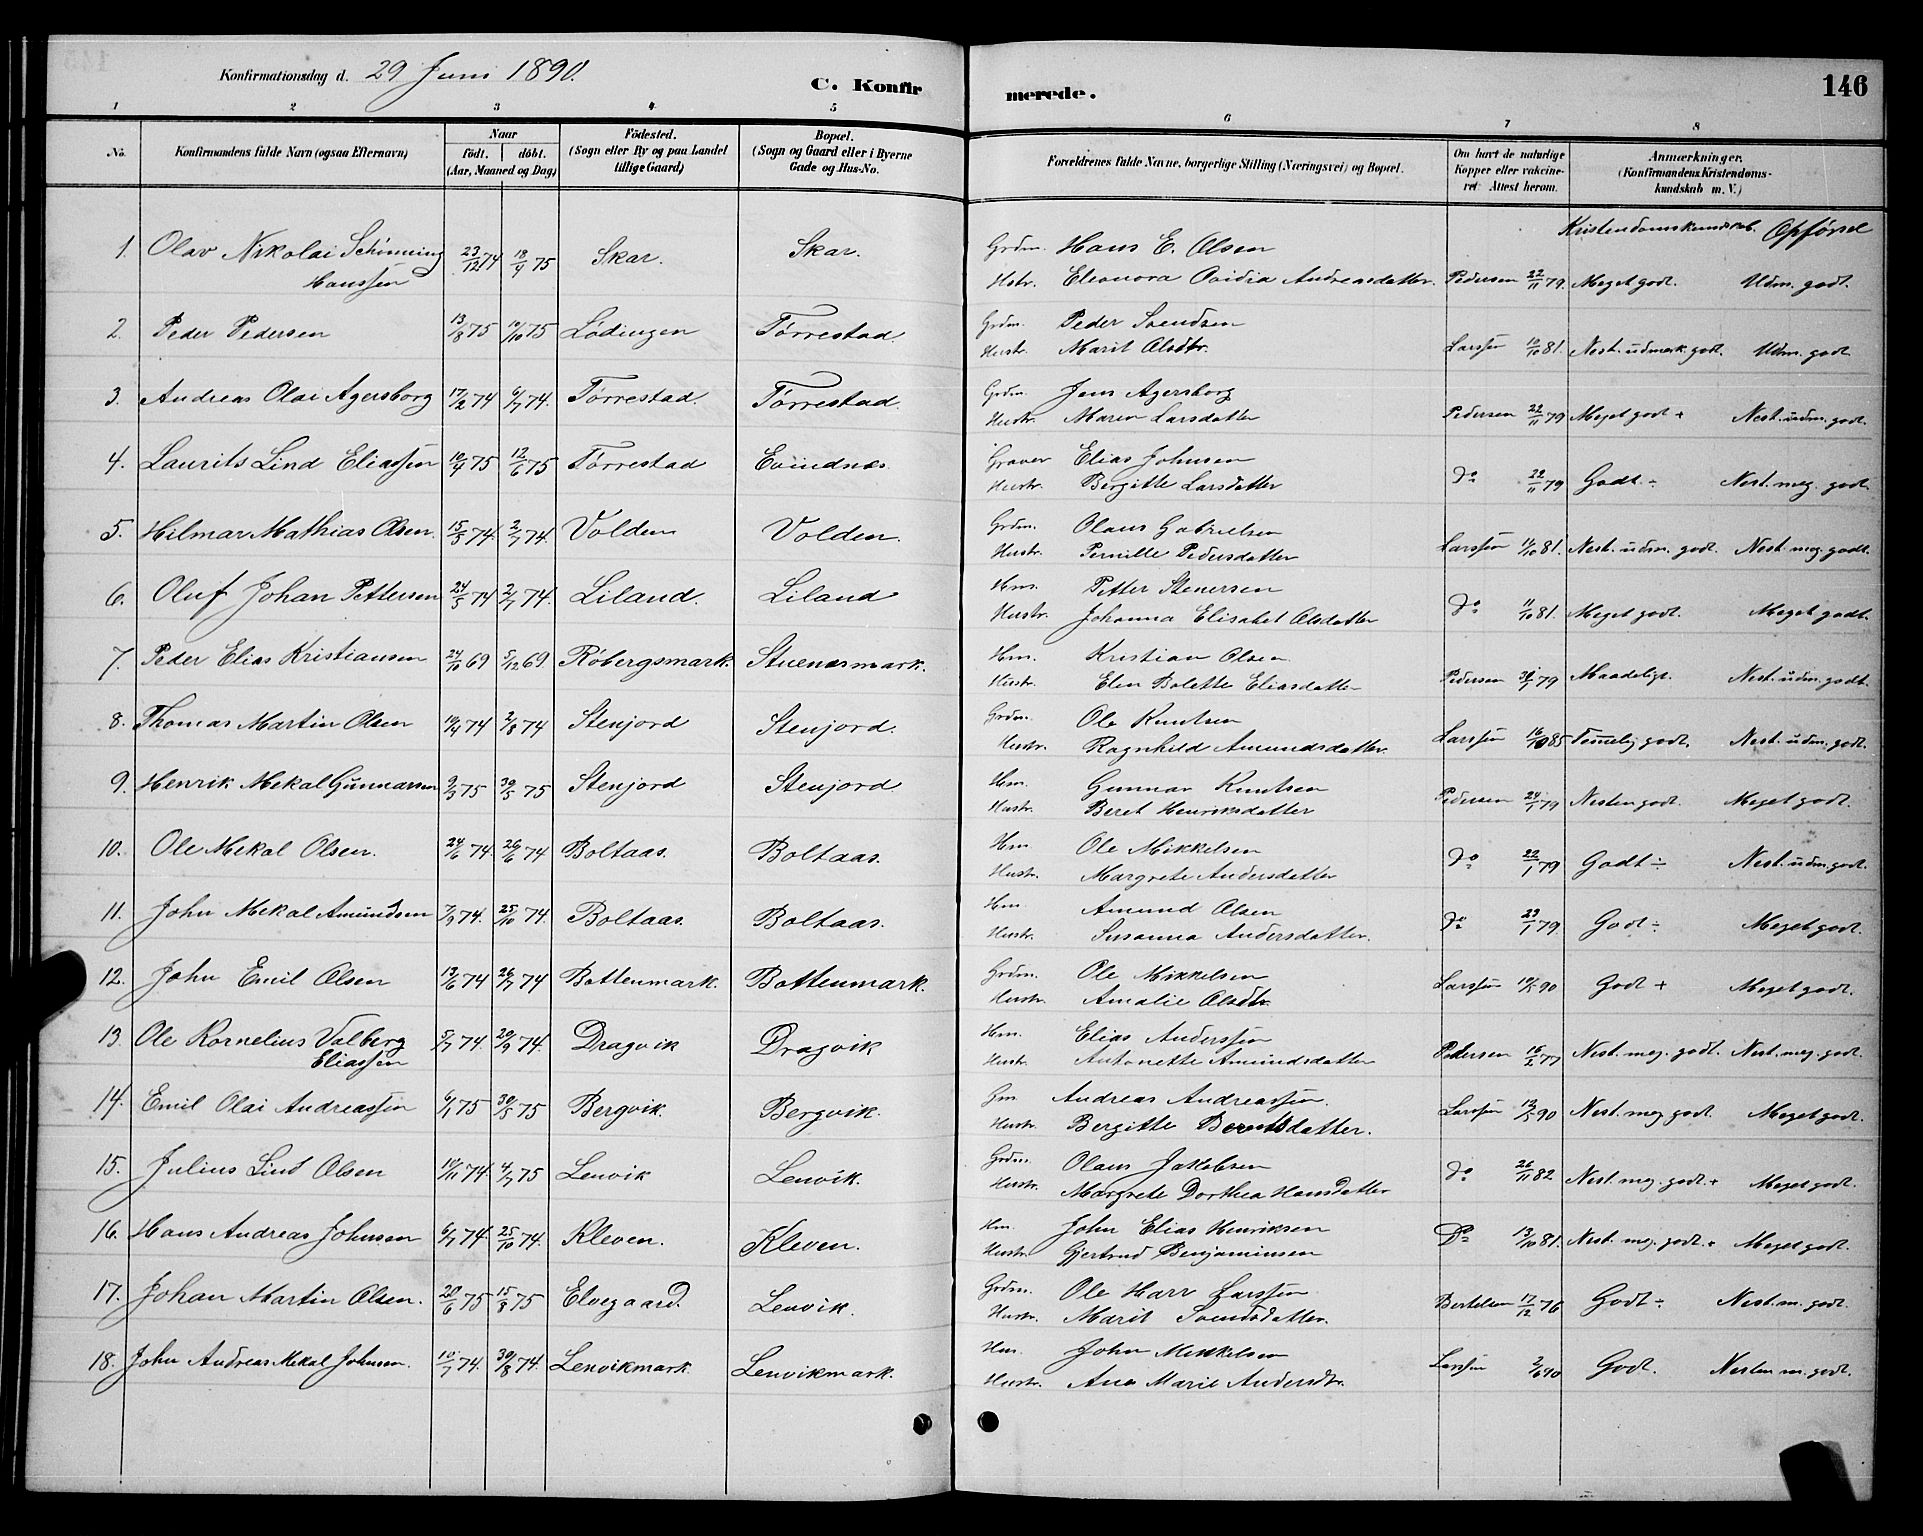 Konfirmationsdag d. 29 Juni 1890.
C. Konfirmerede.
146
1 2 3 4 5 6 7 8
No. Konfirmandens fulde Navn (ogsaa Efternavn) Naar født. døbt. (Aar, Maaned og Dag) Fødested. (Sogn eller By og paa Landet tillige Gaard) Bopæl. (Sogn og Gaard eller i Byerne Gade og Hus-No. Forældrenes fulde Navne, borgerlige Stilling (Næringsvei) og Bopæl. Om havt de naturlige Kopper eller vakcineret. Attest herom. Anmærkninger. (Konfirmandens Kristendomskundskab m. V.)
Kristendomskundskab. Opførsel
1. Olav Nikolai Schønning Hanssen 23/12 74 18/4 75 Skar. Skar. Grdm. Hans E. Olsen
Hstr. Eleonora Ovidia Andreasdatter. Pedersen 22/11 79. Meget godt. Udm. godt.
2. Peder Pedersen 13/8 75 10/10 75 Lødingen Tørrestad Grdm. Peder Svendsen
Hustr. Marit Olsdtr. Larssen 10/10 81. Nest. udmerk. godt. Udm. godt
3. Andreas Olai Agersborg 17/2 74 6/7 74. Tørrestad. Tørrestad. Grdm. Jens Agersborg
Hustr. Maren Larsdatter Pedersen 22/11 79 Meget godt + Nest. udm. godt.
4. Laurits Lind Eliassen 10/4 75 12/6 75 Tørrestad Evindnes Graver Elias Johnsen
Hustr. Bergitte Larsdatter Do 22/11 79 Godt ÷ Nest. meg. godt.
5. Hilmar Mathias Olsen. 15/5 74. 2/7 74. Volden Volden. Grdm. Olaus Gabrielsen
Hustr. Pernille Pedersdatter Larssen 11/10 81. Nest. udm. godt. Nest. meg. godt.
6. Oluf Johan Pettersen 24/5 74 2/7 74. Liland. Liland Hm. Petter Stenersen
Hustr. Johanna Elisabet Olsdatter Do 11/10 81. Meget godt. Meget godt.
7. Peder Elias Kristiansen 24/10 69 5/12 69. Røbergsmark. Stuenesmark. Hm. Kristian Olsen
Hustr. Elen Bolette Eliasdatter Pedersen 31/1 79 Maadeligt. Nest. udm. godt.
8. Thomas Martin Olsen 19/4 74 2/8 74 Stenjord Stenjord. Grdm. Ole Knutsen
Hustr. Ragnhild Amundsdatter. Larssen 16/10 85 Temelig godt. Nest. udm. godt.
9. Henrik Mekal Gunnarsen 9/3 75 30/5 75 Stenjord Stenjord Hm. Gunnar Knutsen
Hustr. Beret Henriksdatter Pedersen 24/1 79 Nesten godt. Meget godt.
10. Ole Mekal Olsen. 24/6 74. 26/6 74 Boltaas. Boltaas. Hm Ole Mikkelsen
Hustr. Margrete Andersdatter Do 22/1 79 Godt ÷ Nest. udm. godt.
11. John Mekal Amundsen 7/9 74. 25/10 74. Boltaas. Boltaas. Hm. Amund Olsen
Hustr. Susanna Andersdatter. Do 23/1 79. Godt ÷ Meget godt.
12. John Emil Olsen 13/6 74 26/7 74 Bottenmark. Bottenmark. Grdm. Ole Mikkelsen
Hustr. Amalie Olsdtr. Larssen 90 Godt + Meget godt.
13. Ole Kornelius Valberg Eliassen 5/7 74. 20/9 74. Dragvik Dragvik Hm. Elias Anderssen
Hustr. Antonette Amundsdatter Pedersen 16/2 77 Nest. meg. godt. Nest. meg. godt.
14. Emil Olai Andreassen 6/1 75 30/5 75 Bergvik. Bergvik. Hm. Andreas Andreassen.
Hustr. Bergitte Berntsdatter. Larssen 90 Nest. meg godt. Meget godt.
15. Julius Lind Olsen 10/11 74. 4/7 75 Lenvik Lenvik. Grdm. Olaus Jakobsen
Hustr. Margrete Dorthea Hansdatter Do 26/11 82 Nest. meg. godt + Meget godt.
16. Hans Andreas Johnsen 6/7 74. 25/10 74. Kleven. Kleven. Hm. John Elias Henriksen
Hustr. Gjertrud Benjaminsen Do 13/10 81. Nest. meg. godt + Meget godt.
17. Johan Martin Olsen. 28/6 75 15/8 75 Elvegaard. Lenvik. Grdm. Ole Harr Larssen
Hustr. Marit Svendsdatter. Bertelsen 17/12 76 Godt ÷ Nest. m. godt.
18. John Andreas Mekal Johnsen. 10/7 74. 30/8 74. Lenvikmark. Lenvikmark. Hm. John Mikkelsen
Hustr. Ane Marie Andersdtr. Larssen 2/6 90 Godt. Nesten m. godt.